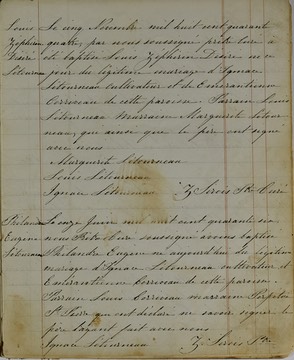 Louis Le cinq Novembre mil huit cent quarante
Zéphirin quatre, par nous soussigné prêtre curé a
Désiré été baptisé Louis Zéphirin Désiré né ce
Létourneau jour du légitime mariage d'Ignace
Létourneau cultivateur et de Emérantienne
Corriveau de cette paroisse. Parrain Louis
Létourneau Marraine Marguerite Létour
neau, qui ainsi que le père ont signé
avec nous
Marguerite Létourneau
Louis Létourneau
Ignace Létourneau Z. Sirois Ptre Curé
Philandre Le onze Juin mil huit cent quarante six
Eugène nous Prêtre Curé soussigné avons baptisé
Létourneau Philandre Eugène né aujourd'hui du légitime
mariage d'Ignace Létourneau cultivateur et
Emérantienne Corriveau de cette paroisse.
Parrain Louis Corriveau marraine
St Pierre qui ont déclaré ne savoir signer le
père ayant fait avec nous
Ignace Létourneau Z. Sirois Ptre